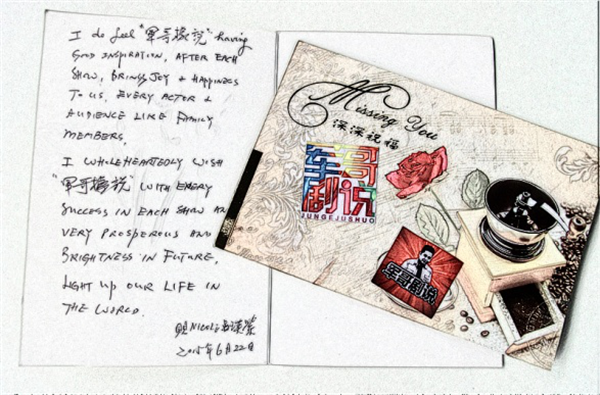 I do feel "軍哥據說" having
GOOD INSPIRATION, AFTER EACH
SHOW, BRINGS JOY & HAPPINESS
TO US, EVERY ACTOR &
AUDIENCE LIKE FAMILY
MEMBERS.
I WHILEHEARTEDLY WISH
"軍哥據說" WITH EVERY
SUCCESS IN EACH SHOW
VERY PROSPEROUS AND
BRIGHTNESS IN FUTURE,
LIGHT UP OUR LIFE IN
THE WORLD.
NICOLE
2015年6月22日
Missing You
深深祝福
军哥
剧说
JUNGEJUSHUO
军哥剧说